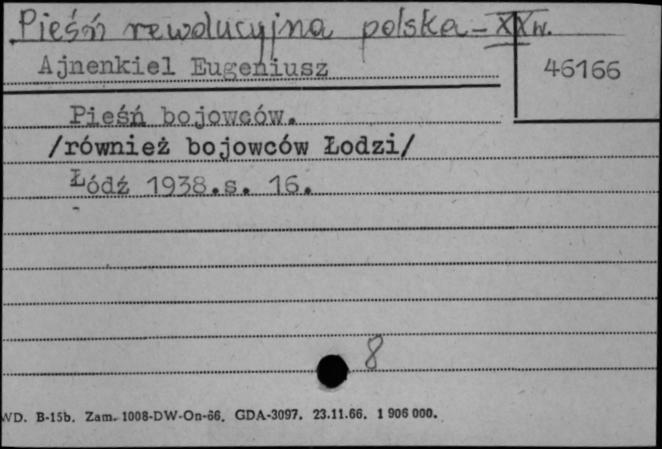 Pieśń rewolucyjna polska - XX w.
Ajnenkiel Eugeniusz
46166
Pieśń bojowców.
/również bojowców Łodzi/
Łódź 1938.s. 16.
8
WD. B-15b. Zam. 1008-DW-On-66. GDA-3097. 23.11.66. 1 906 000.